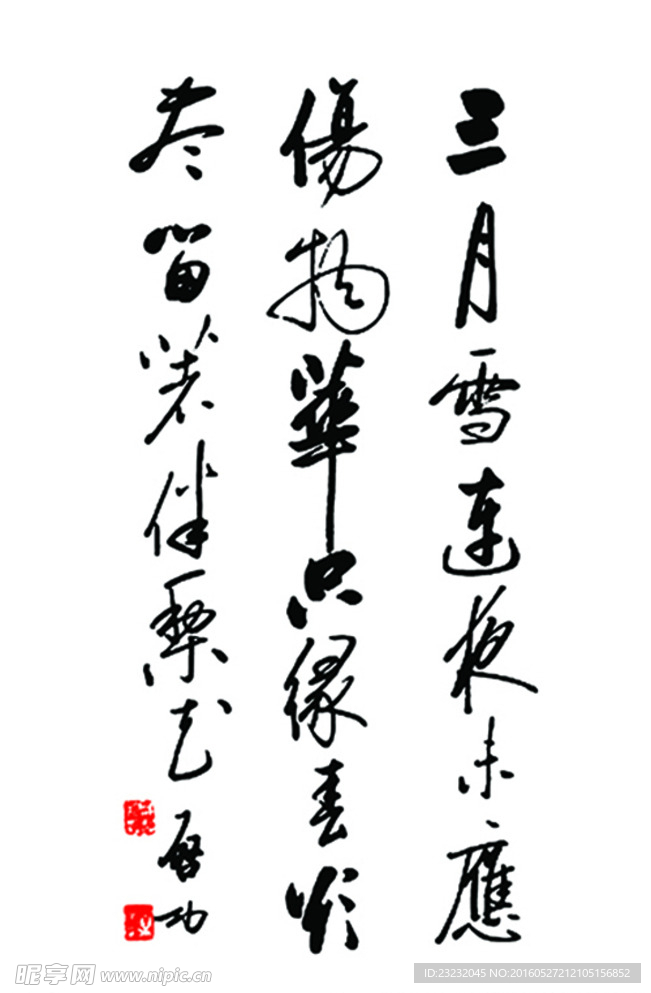 三月雪連夜未應
傷物華只緣春欲
尽留著伴梨花 啓功
昵享网 www.nipic.cn
ID:23232045 NO:20160527212105156852